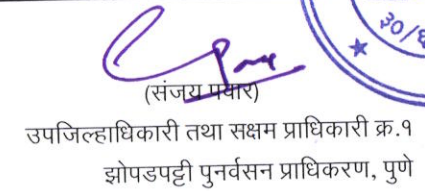 ३०/६
(संजय पवार)
उपजिल्हाधिकारी तथा सक्षम प्राधिकारी क्र.१
झोपडपट्टी पुनर्वसन प्राधिकरण, पुणे